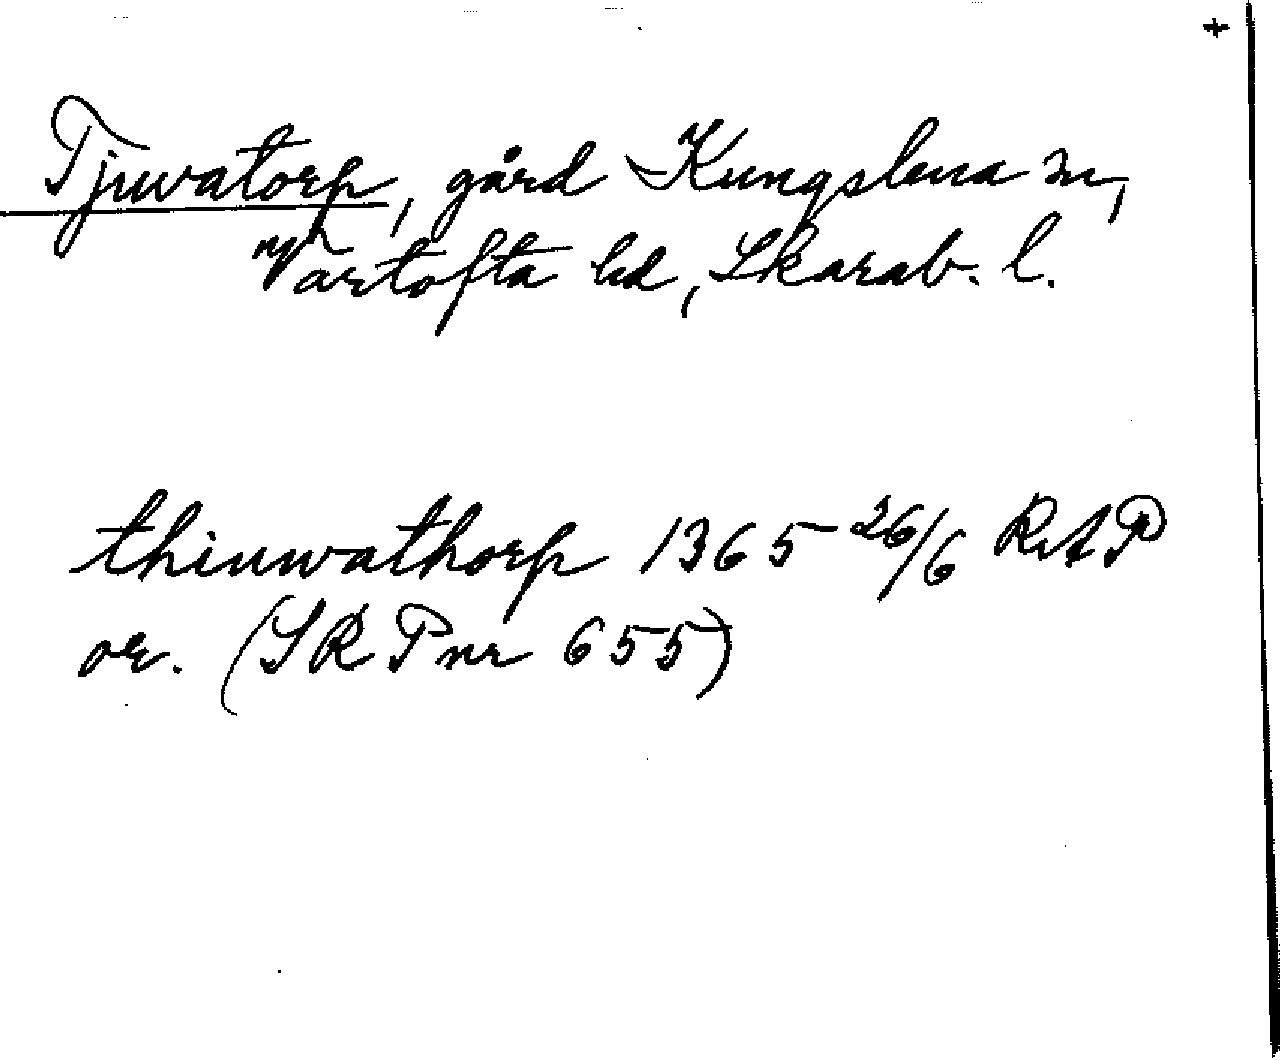 +
Tjuvatorp, gård Kungslena sn,
Vartofta hd, Skarab. l.
thiuwathorp 1365 26/6 RAP
or. (SRP nr 655)